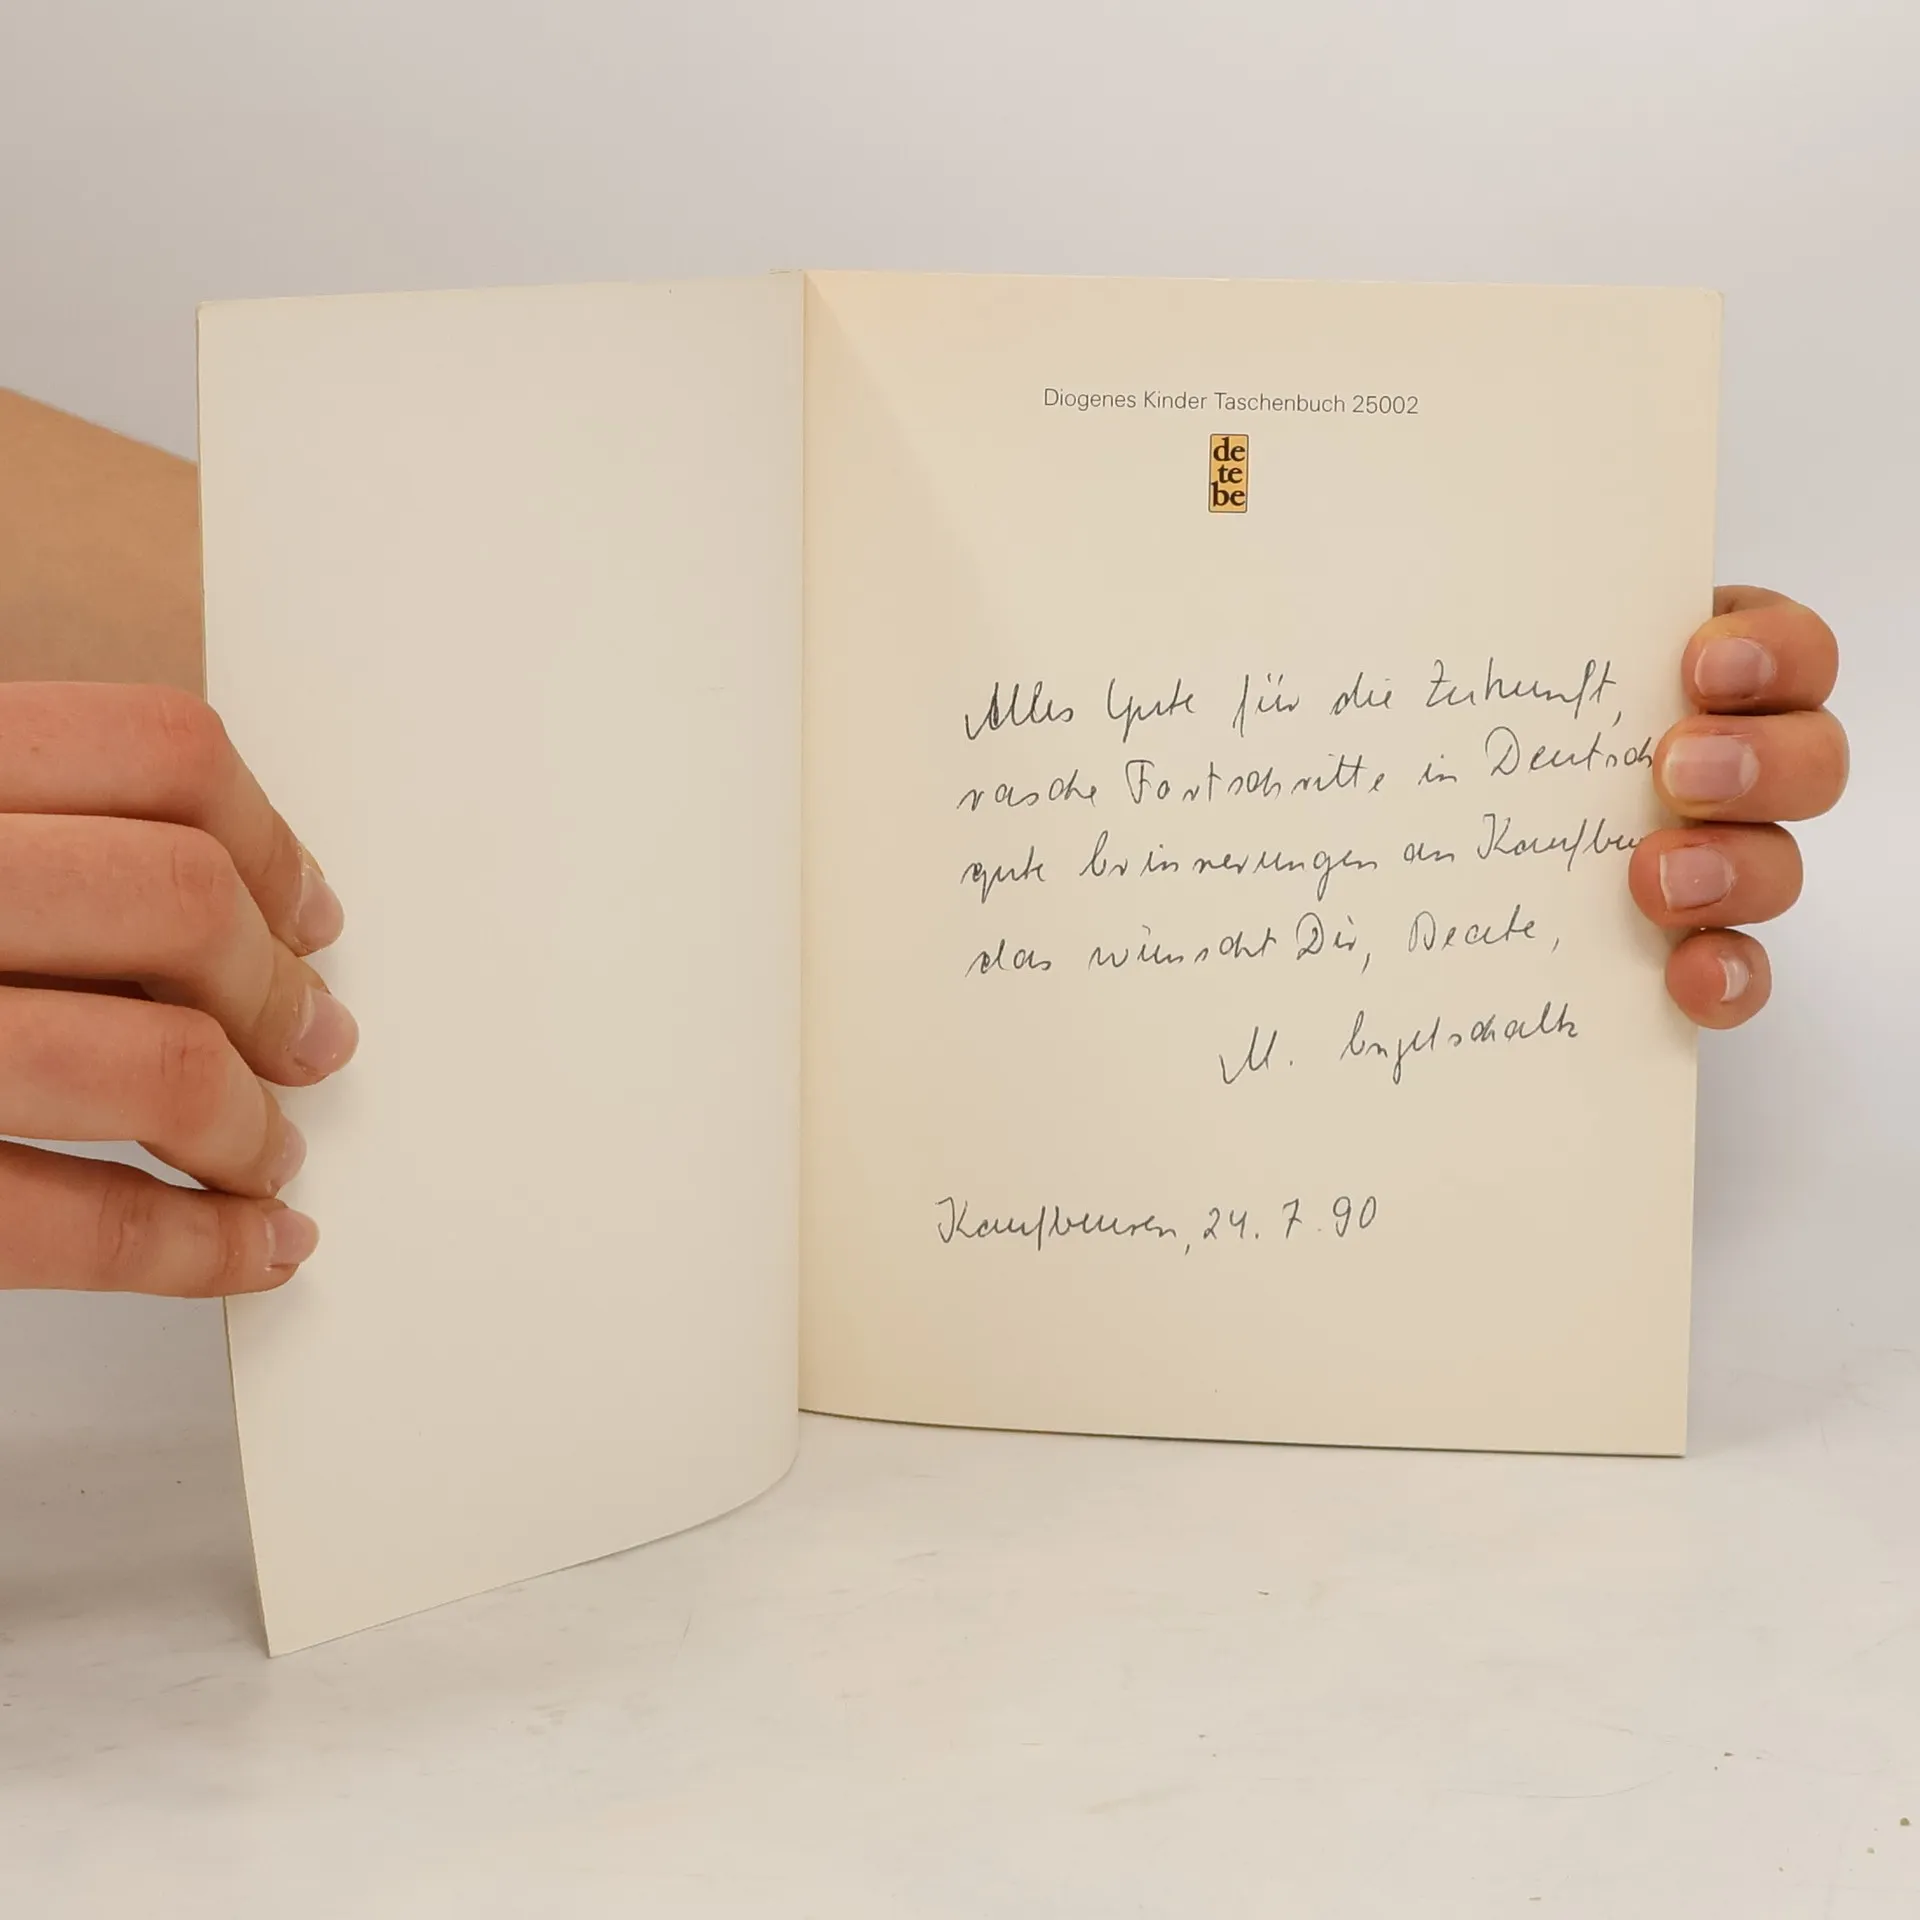 Diogenes Kinder Taschenbuch 25002
de
te
be
Alles Gute für die Zukunft,
rasche Fortschritte in Deutsch
gute Erinnerungen an Kaufbeu
das wünscht Dir, Beate,
M. Engelschalk
Kaufbeuren, 24. 7. 90